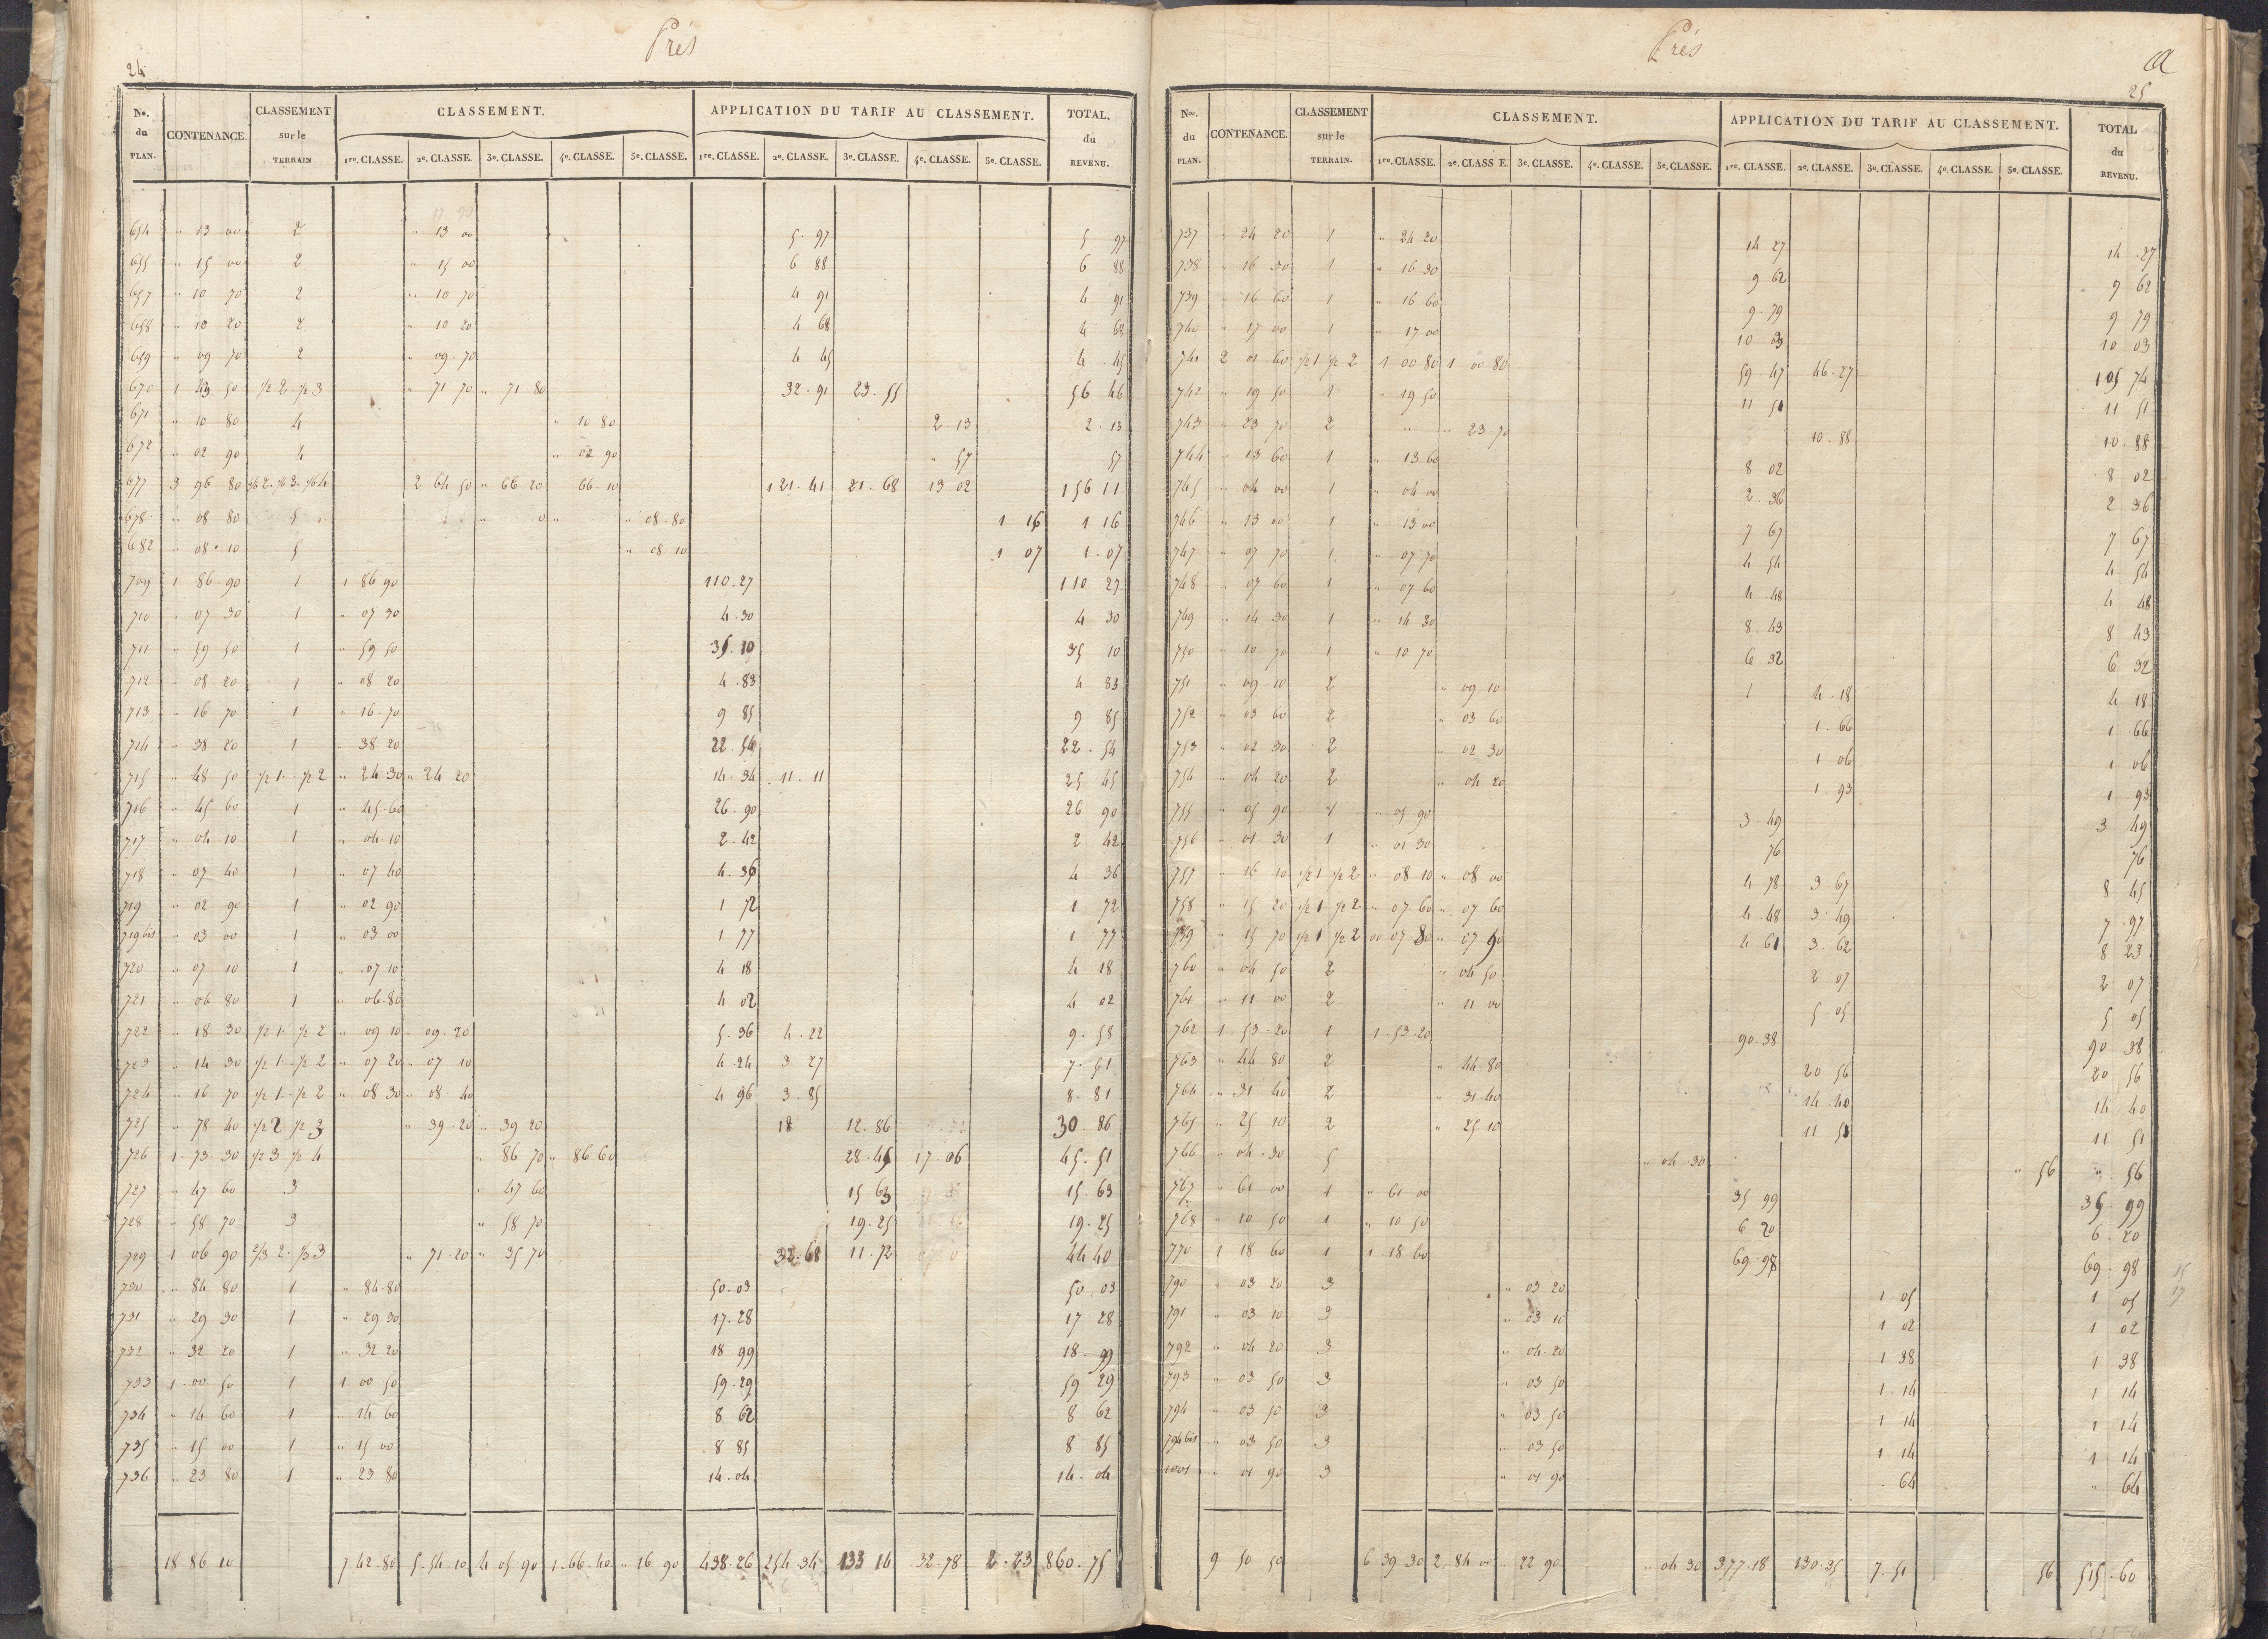 Prés
24
No. du PLAN. CONTENANCE. CLASSEMENT sur le TERRAIN CLASSEMENT. APPLICATION DU TARIF AU CLASSEMENT. TOTAL. du REVENU.
1re. CLASSE. 2e. CLASSE. 3e. CLASSE. 4e. CLASSE. 5e. CLASSE. 1re. CLASSE. 2e. CLASSE. 3e. CLASSE. 4e. CLASSE. 5e. CLASSE.
654 " 13 00 2 " 13 00 5.97 5 97
655 " 15 00 2 " 15 00 6 88 6 88
657 " 10 70 2 " 10 70 4 91 4 91
658 " 10 20 2 " 10 20 4 68 4 68
659 " 09 70 2 " 09.70 4 45 4 45
670 1 43 50 1/2 2 1/2 3 " 71 70 " 71 80 32.91 23.55 56 46
671 " 10 80 4 " 10 80 2.13 2.13
672 " 02 90 4 " 02 90 " 57 57
677 3 96 80 3/6 2. 1/6 3. 1/6 4 2 64 50 " 66 20 66.10 121.41 21.68 13.02 156 11
678 " 08 80 5 " 08.80 1 16 1 16
682 " 08.10 5 " 08 10 1 07 1.07
709 1 86.90 1 1 86 90 110.27 110 27
710 " 07 30 1 " 07 30 4.30 4 30
711 " 59 50 1 " 59 50 35.10 35 10
712 " 08 20 1 " 08 20 4.83 4 83
713 " 16 70 1 " 16.70 9 85 9 85
714 " 38 20 1 " 38 20 22.54 22.54
715 " 48 50 1/2 1. 1/2 2 " 24 30 " 24 20 14.34 11.11 25 45
716 " 45 60 1 " 45.60 26.90 26 90
717 " 04 10 1 " 04.10 2.42 2 42
718 " 07 40 1 " 07 40 4.36 4 36
719 " 02 90 1 " 02 90 1 72 1 72
719 bis " 03 00 1 " 03 00 1 77 1 77
720 " 07 10 1 " 07 10 4 18 4 18
721 " 06 80 1 " 06.80 4 02 4 02
722 " 18 30 1/2 1. 1/2 2 " 09 10 " 09.20 5.36 4.22 9.58
723 " 14 30 1/2 1. 1/2 2 " 07 20 " 07 10 4.24 3 27 7.51
724 " 16 70 1/2 1. 1/2 2 " 08 30 " 08 40 4 96 3.85 8.81
725 " 78 40 1/2 2 1/2 3 " 39.20 " 39 20 18 12.86 30.86
726 1.73.30 1/2 3 1/2 4 " 86 70 " 86 60 28.45 17.06 45.51
727 " 47 60 3 " 47 60 15 63 15.63
728 " 58 70 3 " 58 70 19.25 19.25
729 1 06 90 2/3 2. 1/3 3 " 71.20 " 35 70 32.68 11.72 44 40
730 " 84 80 1 " 84.80 50.03 50 03
731 " 29 30 1 " 29 30 17.28 17 28
732 " 32 20 1 " 32 20 18 99 18.99
733 1.00 50 1 1 00 50 59.29 59 29
734 " 14 60 1 " 14 60 8 62 8 62
735 " 15 00 1 " 15 00 8 85 8 85
736 " 23 80 1 " 23 80 14.04 14.04
18 86 10 7.42.80 5.54.10 4 05 90 1.66.40 " 16 90 438.26 254 34 133 14 32.78 2.23 860.75
Prés
a
25
Nos. du PLAN. CONTENANCE. CLASSEMENT sur le TERRAIN. CLASSEMENT. APPLICATION DU TARIF AU CLASSEMENT. TOTAL du REVENU.
1re. CLASSE. 2e. CLASS E. 3e. CLASSE. 4e. CLASSE. 5e. CLASSE. 1re. CLASSE. 2e. CLASSE. 3e. CLASSE. 4e. CLASSE. 5e. CLASSE.
737 " 24 20 1 " 24 20 14 27 14.27
738 " 16 30 1 " 16 30 9 62 9 62
739 " 16 60 1 " 16 60 9.79 9 79
740 " 17 00 1 " 17 00 10 03 10 03
741 2 01 60 1/2 1 1/2 2 1 00 80 1 00 80 59.47 46.27 105 74
742 " 19 50 1 " 19 50 11 51 11 51
743 " 23 70 2 " " 23.70 10.88 10.88
744 " 13 60 1 " 13 60 8 02 8 02
745 " 04 00 1 " 04 00 2.36 2 36
746 " 13 00 1 " 13 00 7 67 7 67
747 " 07 70 1 " 07 70 4 54 4 54
748 " 07 60 1 " 07 60 4 48 4 48
749 " 14 30 1 " 14 30 8.43 8 43
750 " 10 70 1 " 10 70 6 32 6 32
751 " 09 10 2 " 09 10 4.18 4 18
752 " 03 60 2 " 03 60 1.66 1 66
753 " 02 30 2 " 02 30 1 06 1 06
754 " 04 20 2 " 04 20 1.93 1.93
755 " 05 90 1 " 05 90 3.49 3 49
756 " 01 30 1 " 01 30 76 76
757 " 16 10 1/2 1 1/2 2 " 08 10 " 08 00 4 78 3.67 8 45
758 " 15 20 1/2 1 1/2 2 " 07.60 " 07 60 4.48 3.49 7.97
759 " 15 70 1/2 1 1/2 2 00 07 80 " 07 90 4 61 3.62 8 23
760 " 04 50 2 " 04 50 2 07 2 07
761 " 11 00 2 " 11 00 5.05 5 05
762 1.53.20 1 1.53.20 90.38 90 38
763 " 44 80 2 " 44.80 20 56 20 56
764 " 31 40 2 " 31.40 14.40 14 40
765 " 25 10 2 " 25 10 11 51 11 51
766 " 04.30 5 " 04.30 " 56 " 56
767 " 61 00 1 " 61 00 35 99 35.99
768 " 10 50 1 " 10 50 6 20 6.20
770 1 18 60 1 1.18 60 69.98 69.98
790 " 03 20 3 " 03 20 1.05 1 05
791 " 03 10 3 " 03 10 1 02 1 02
792 " 04 20 3 " 04.20 1 38 1 38
793 " 03 50 3 " 03 50 1.14 1 14
794 " 03 50 3 " 03 50 1 14 1 14
794 bis " 03 50 3 " 03 50 1 14 1 14
1001 " 01 90 3 " 01 90 64 " 64
9 50 50 6 39.30 2, 84 00 " 22 90 " 04 30 377.18 130.35 7.51 56 515.60